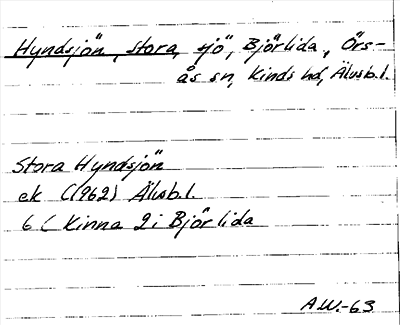 Hyndsjön, stora, sjö, Björlida, Örs-
ås sn, Kinds hd, Älvsb.l.
Stora Hyndsjön
ek (1962) Älvsb.l.
6 C Kinna 2i Björlida
A.W.-63